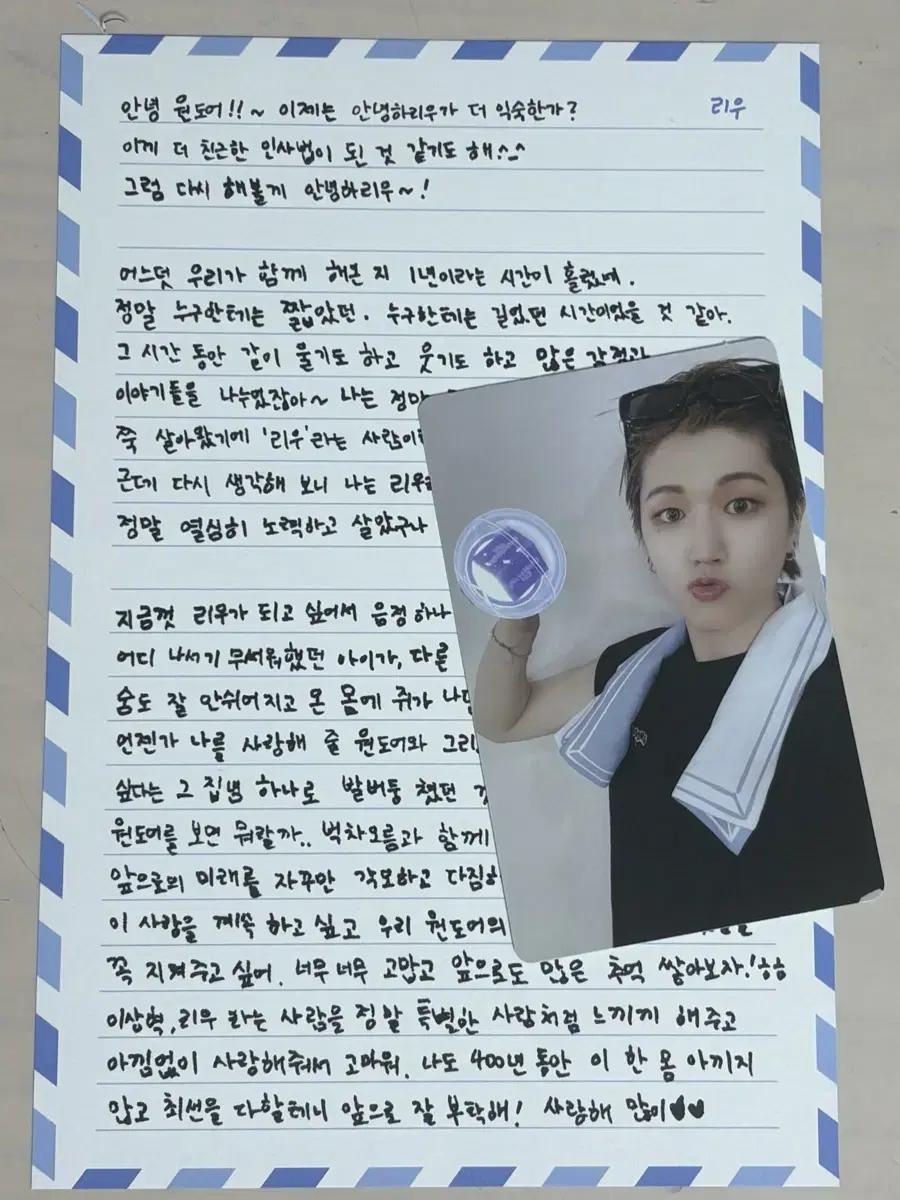 리우
안녕 원도어!!~ 이제는 안녕하리우가 더 익숙한가?
이게 더 친근한 인사법이 된 것 같기도 해^_^
그럼 다시 해볼게 안녕하리우~!
어느덧 우리가 함께 해온 지 1년이라는 시간이 흘렀네.
정말 누구한테는 짧았던. 누구한테는 길었던 시간이었을 것 같아.
그 시간 동안 같이 울기도 하고 웃기도 하고 많은 감정과
이야기들을 나누었잖아~ 나는 정말
쭉 살아왔기에 '리우'라는 사람이
근데 다시 생각해 보니 나는 리우
정말 열심히 노력하고 살았구나
지금껏 리우가 되고 싶어서 음정 하나
어디 나서기 무서워했던 아이가, 다른
숨도 잘 안쉬어지고 온 몸에 쥐가
언젠가 나를 사랑해 줄 원도어와
싶다는 그 집념 하나로 발버둥 쳤던
원도어를 보면 뭐랄까.. 벅차오름과 함께
앞으로의 미래를 자꾸만 각오하고
이 사랑을 계속 하고 싶고 우리 원도어의
꼭 지켜주고 싶어. 너무 너무 고맙고 앞으로도 많은 추억 쌓아보자!ㅎㅎ
이상혁, 리우 라는 사람을 정말 특별한 사람처럼 느끼게 해주고
아낌없이 사랑해줘서 고마워. 나도 400년 동안 이 한 몸 아끼지
않고 최선을 다할테니 앞으로 잘 부탁해! 사랑해 많이♥♥